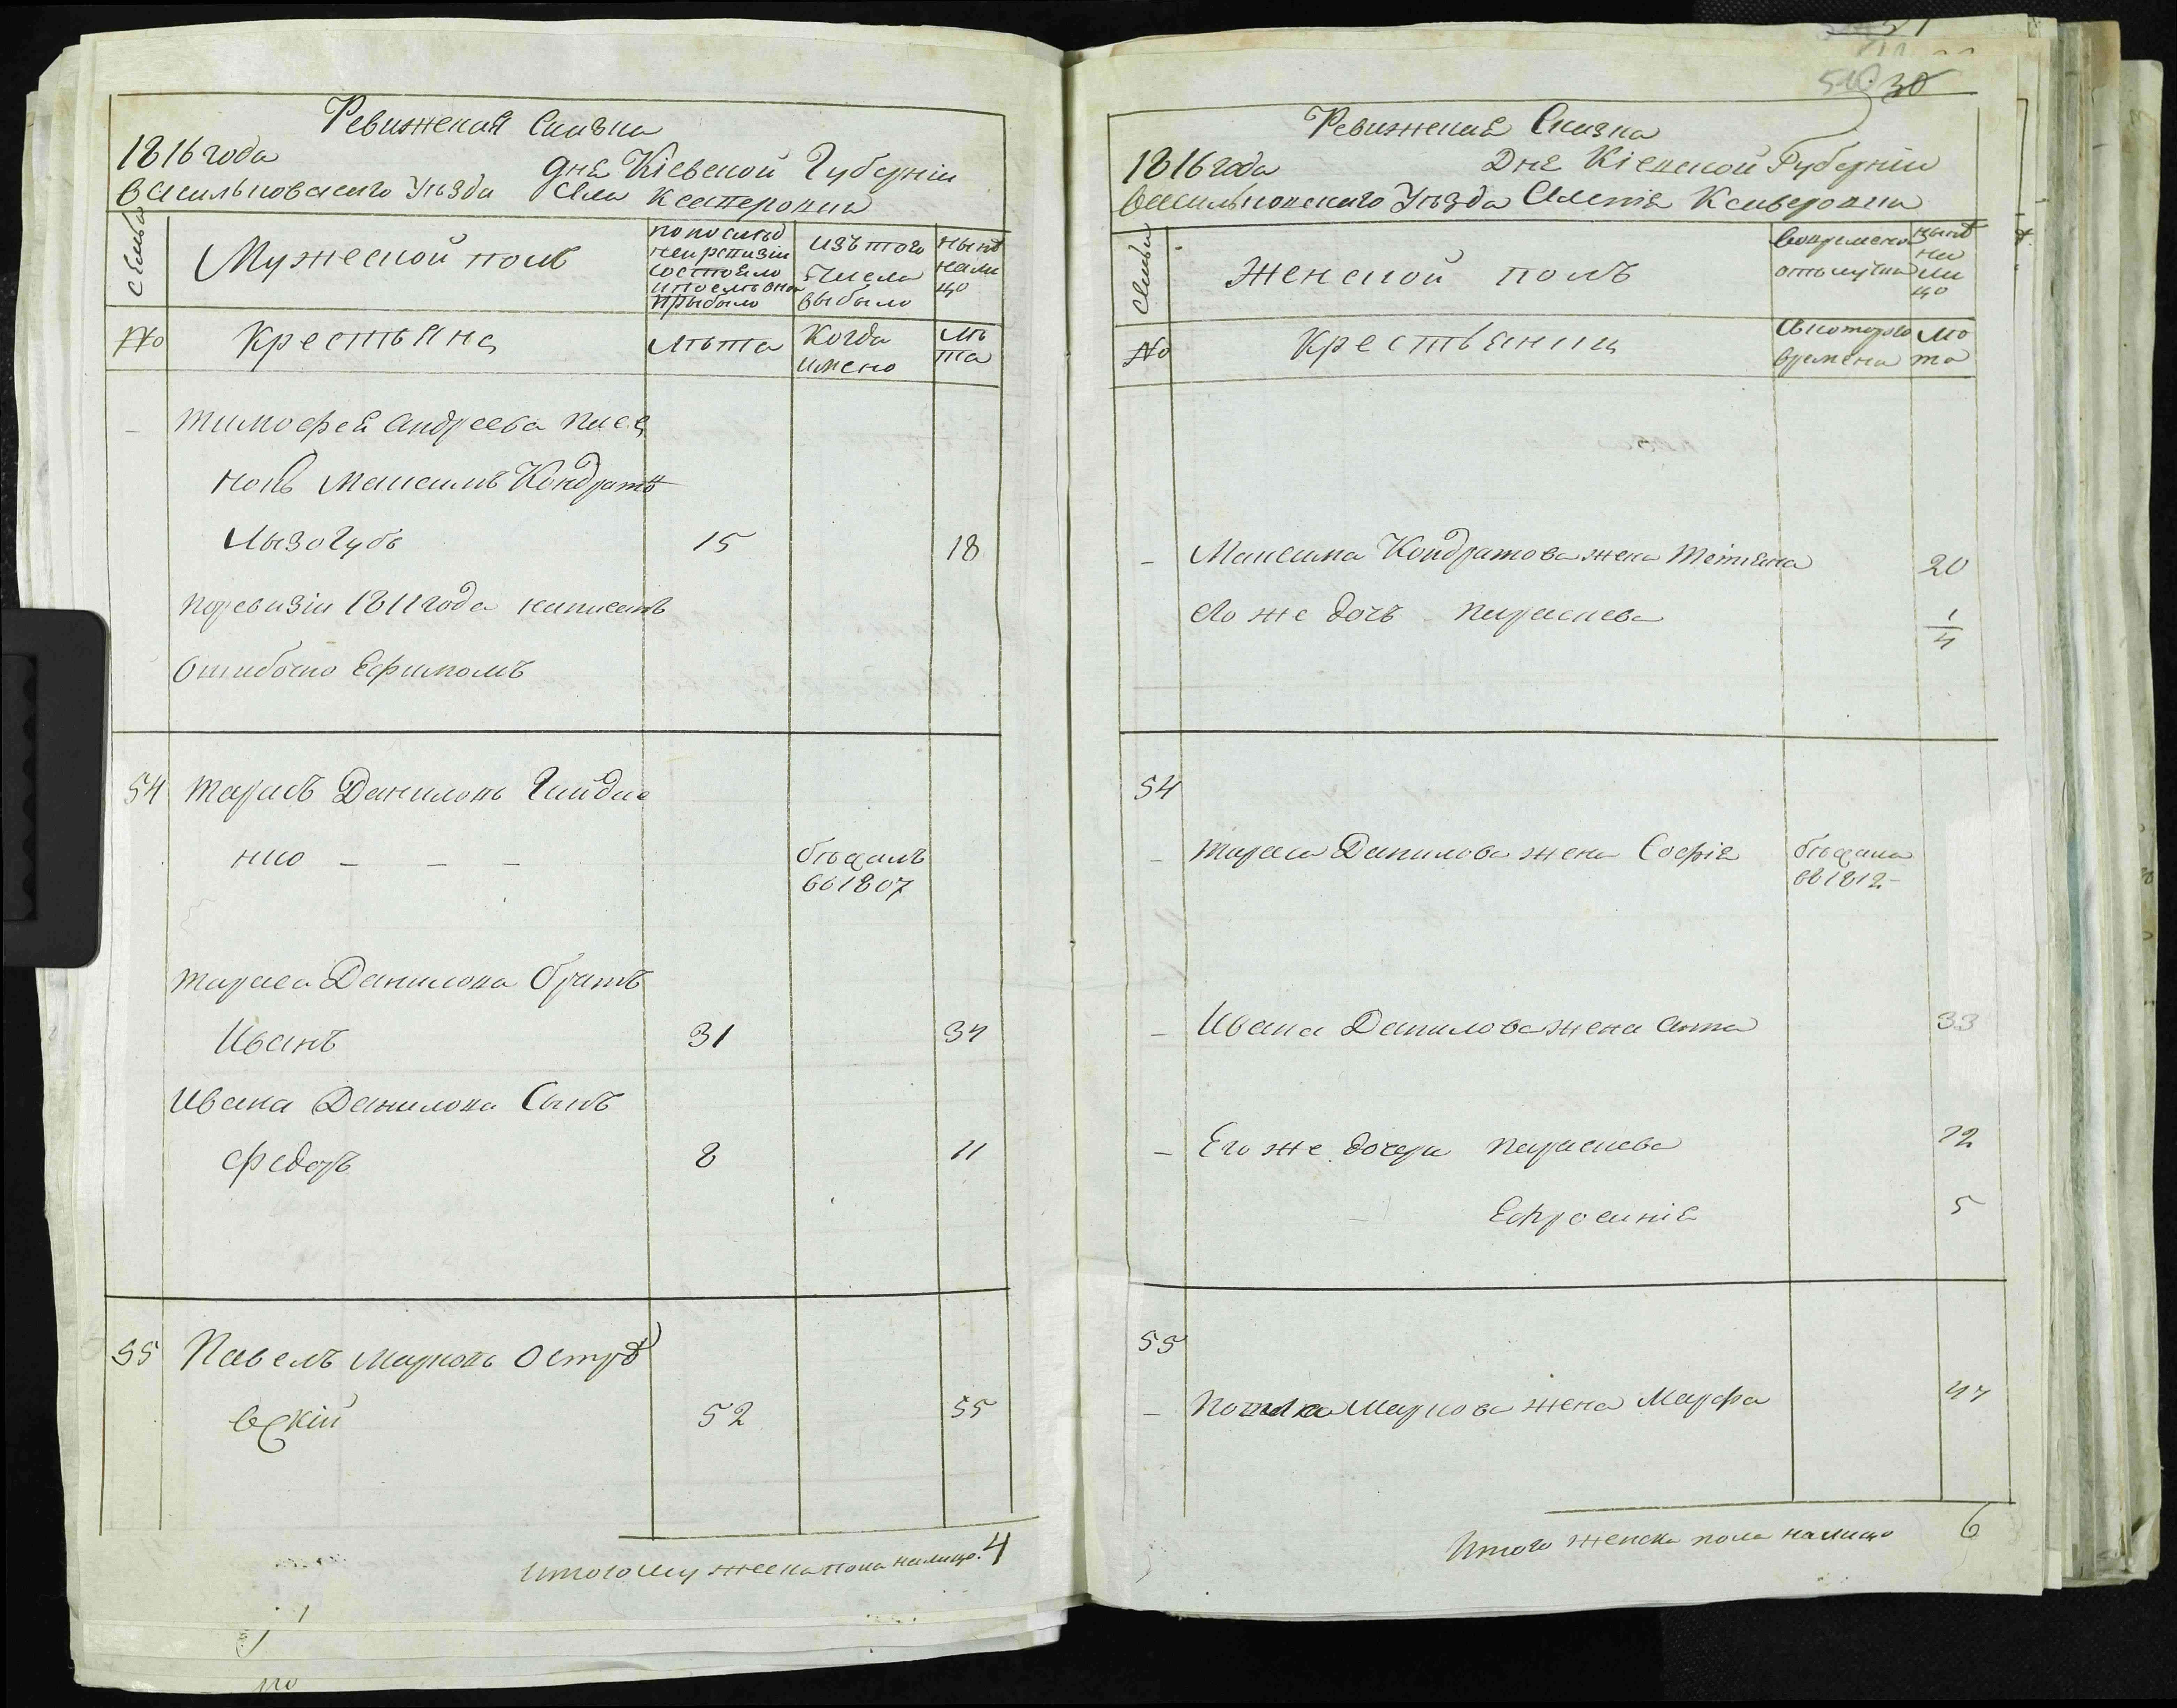 Ревижская Сказка
1816 года
дня Кіевской Губерніи
Васильковскаго Уѣзда Села Ксаверовки
Семьи
Мужеской полъ
по послед
ней ревизіи
состояло
и после оной
прибыло
изъ того
числа
выбыло
ныне
нали
цо
№
Крестьяне
Лѣта
Когда
имено
Лѣ
та
Тимофея Андреева
Максимъ Кондратовъ
Лызогубъ 15 18
по ревизіи 1811 года написанъ
ошибочно Ефимомъ
54 Тарасъ Даниловъ Гайдае
нко - - - бѣжалъ
въ 1807
Тараса Данилова братъ
Иванъ 31 34
Ивана Данилова Сынъ
Федоръ 8 11
55 Павелъ Марковъ Остро
вскій 52 55
Итого мужеска пола налицо. 4
30
Ревижская Сказка
1816 года
Дня Кіевской Губерніи
Васильковскаго Уѣзда Ксаверовки
Семьи
Женской полъ
во временной
отлучки
ныне
на
ли
цо
№
Крестьянки
Съ котораго
времени
Лѣ
та
- Максима Кондратова жена Тетіяна 20
его же дочь Параскева 1/4
54
- Тараса Данилова жена Софія бѣжала
въ 1812-
- Ивана Данилова жена Анна 33
- Его же дочери Параскева 12
Ефросинія 5
55
- Павла Маркова жена Марфа 47
Итого женска пола налицо 6